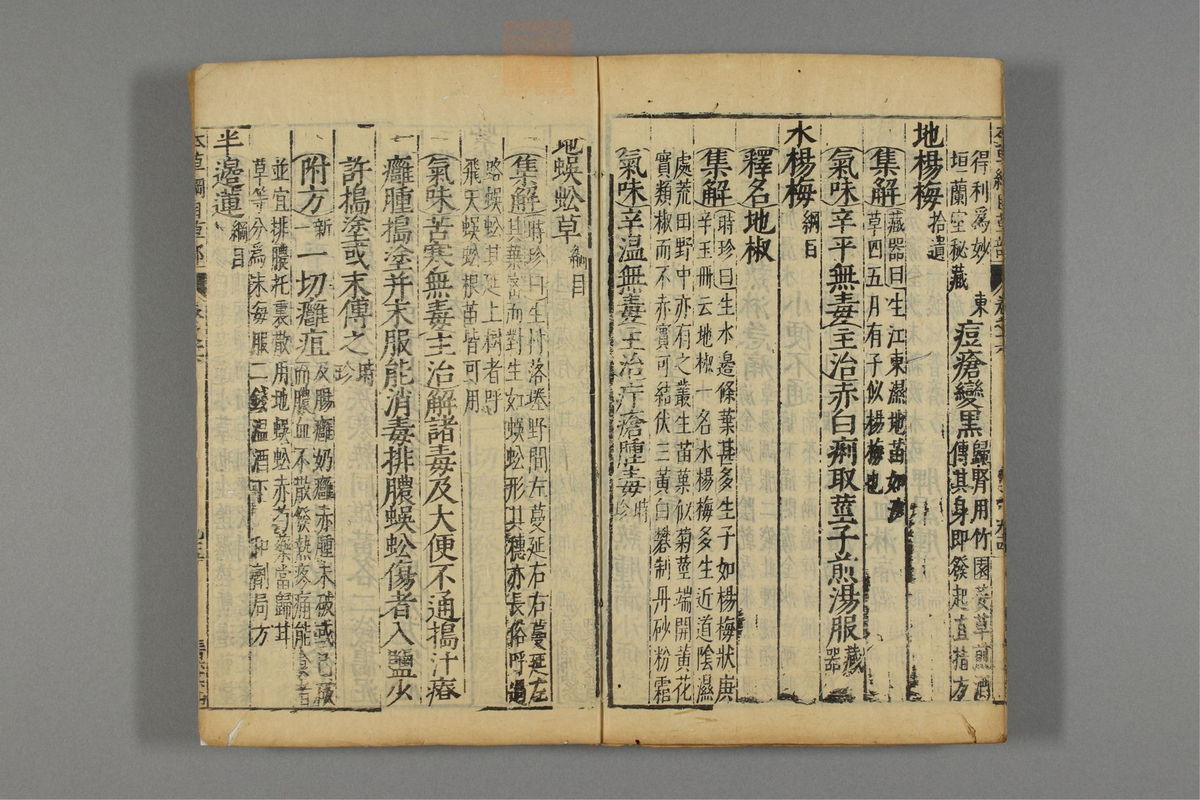 得利爲妙
垣蘭室秘藏 東
痘瘡變黑 歸腎用竹園荽草煎酒
傅其身即發起直指方
地楊梅 拾遺
集解 藏器曰生江東濕地苗如
草四五月有子似楊梅也
氣味辛平無毒主治赤白痢取莖子煎湯服 藏器
水楊梅 綱目
釋名地椒
集解 時珍曰生水邊條葉甚多生子如楊梅狀庚
辛玉册云地椒一名水楊梅多生近道陰濕
處荒田野中亦有之叢生苗葉似菊莖端開黃花
實類椒而不赤實可結伏三黃白礬制丹砂粉霜
氣味辛温無毒主治疔瘡腫毒 時珍
地蜈蚣草 綱目
集解 時珍曰生村落塍野間左蔓延右右蔓延左
其葉密而對生如蜈蚣形其穗亦長俗呼過
路蜈蚣其延上樹者呼
飛天蜈蚣根苗皆可用
氣味苦寒無毒主治解諸毒及大便不通搗汁療
癰腫搗塗并末服能消毒排膿蜈蚣傷者入鹽少
許搗塗或末傅之 時珍
附方 新一 一切癰疽 及腸癰奶癰赤腫未破或已破
而膿血不散發熱疼痛能食者
並宜排膿托裏散用地蜈蚣赤芍藥當歸甘
草等分爲末每服二錢温酒下 和劑局方
半邊蓮 綱目
本草綱目草部